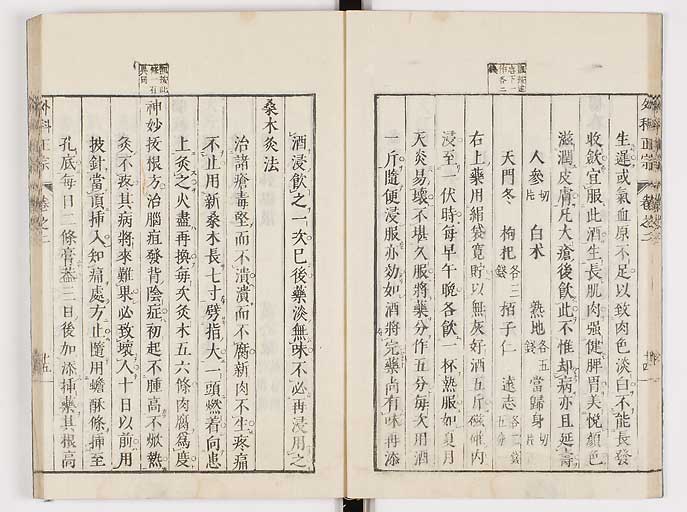 外科正宗 卷之二
生遲或氣血原不足以致肉色淡白不能長發
收斂宜服此酒生長肌肉强健脾胃美悅顏色
滋潤皮膚凡大瘡後飲此不惟却病亦且延壽
人參切片 白术 熟地各五錢 當歸身切片
天門冬 枸杞各三錢 栢子仁 遠志各二錢五分
右上藥用絹袋寬貯以無灰好酒五斤磁礶內
浸至一伏時每早午晚各飲一杯熱服如夏月
天炎易壞不堪久服將藥分作五分每次用酒
一斤隨便浸服亦効如酒將完藥尚有味再添
酒浸飲之一次已後藥淡無味不必再浸用之
桑木灸法
治諸瘡毒堅而不潰潰而不腐新肉不生疼痛
不止用新桑木長七寸劈指大一頭燃着向患
上灸之火盡再換每次灸木五六條肉腐爲度
神妙拔根方治腦疽發背陰症初起不腫高不焮熱
灸不疼其病將來難果必致壞人十日以前用
披針當頂挿入知痛處方止隨用蟾酥條挿至
孔底每日二條膏葢三日後加添挿藥其根高
外科正宗 卷之二 十五